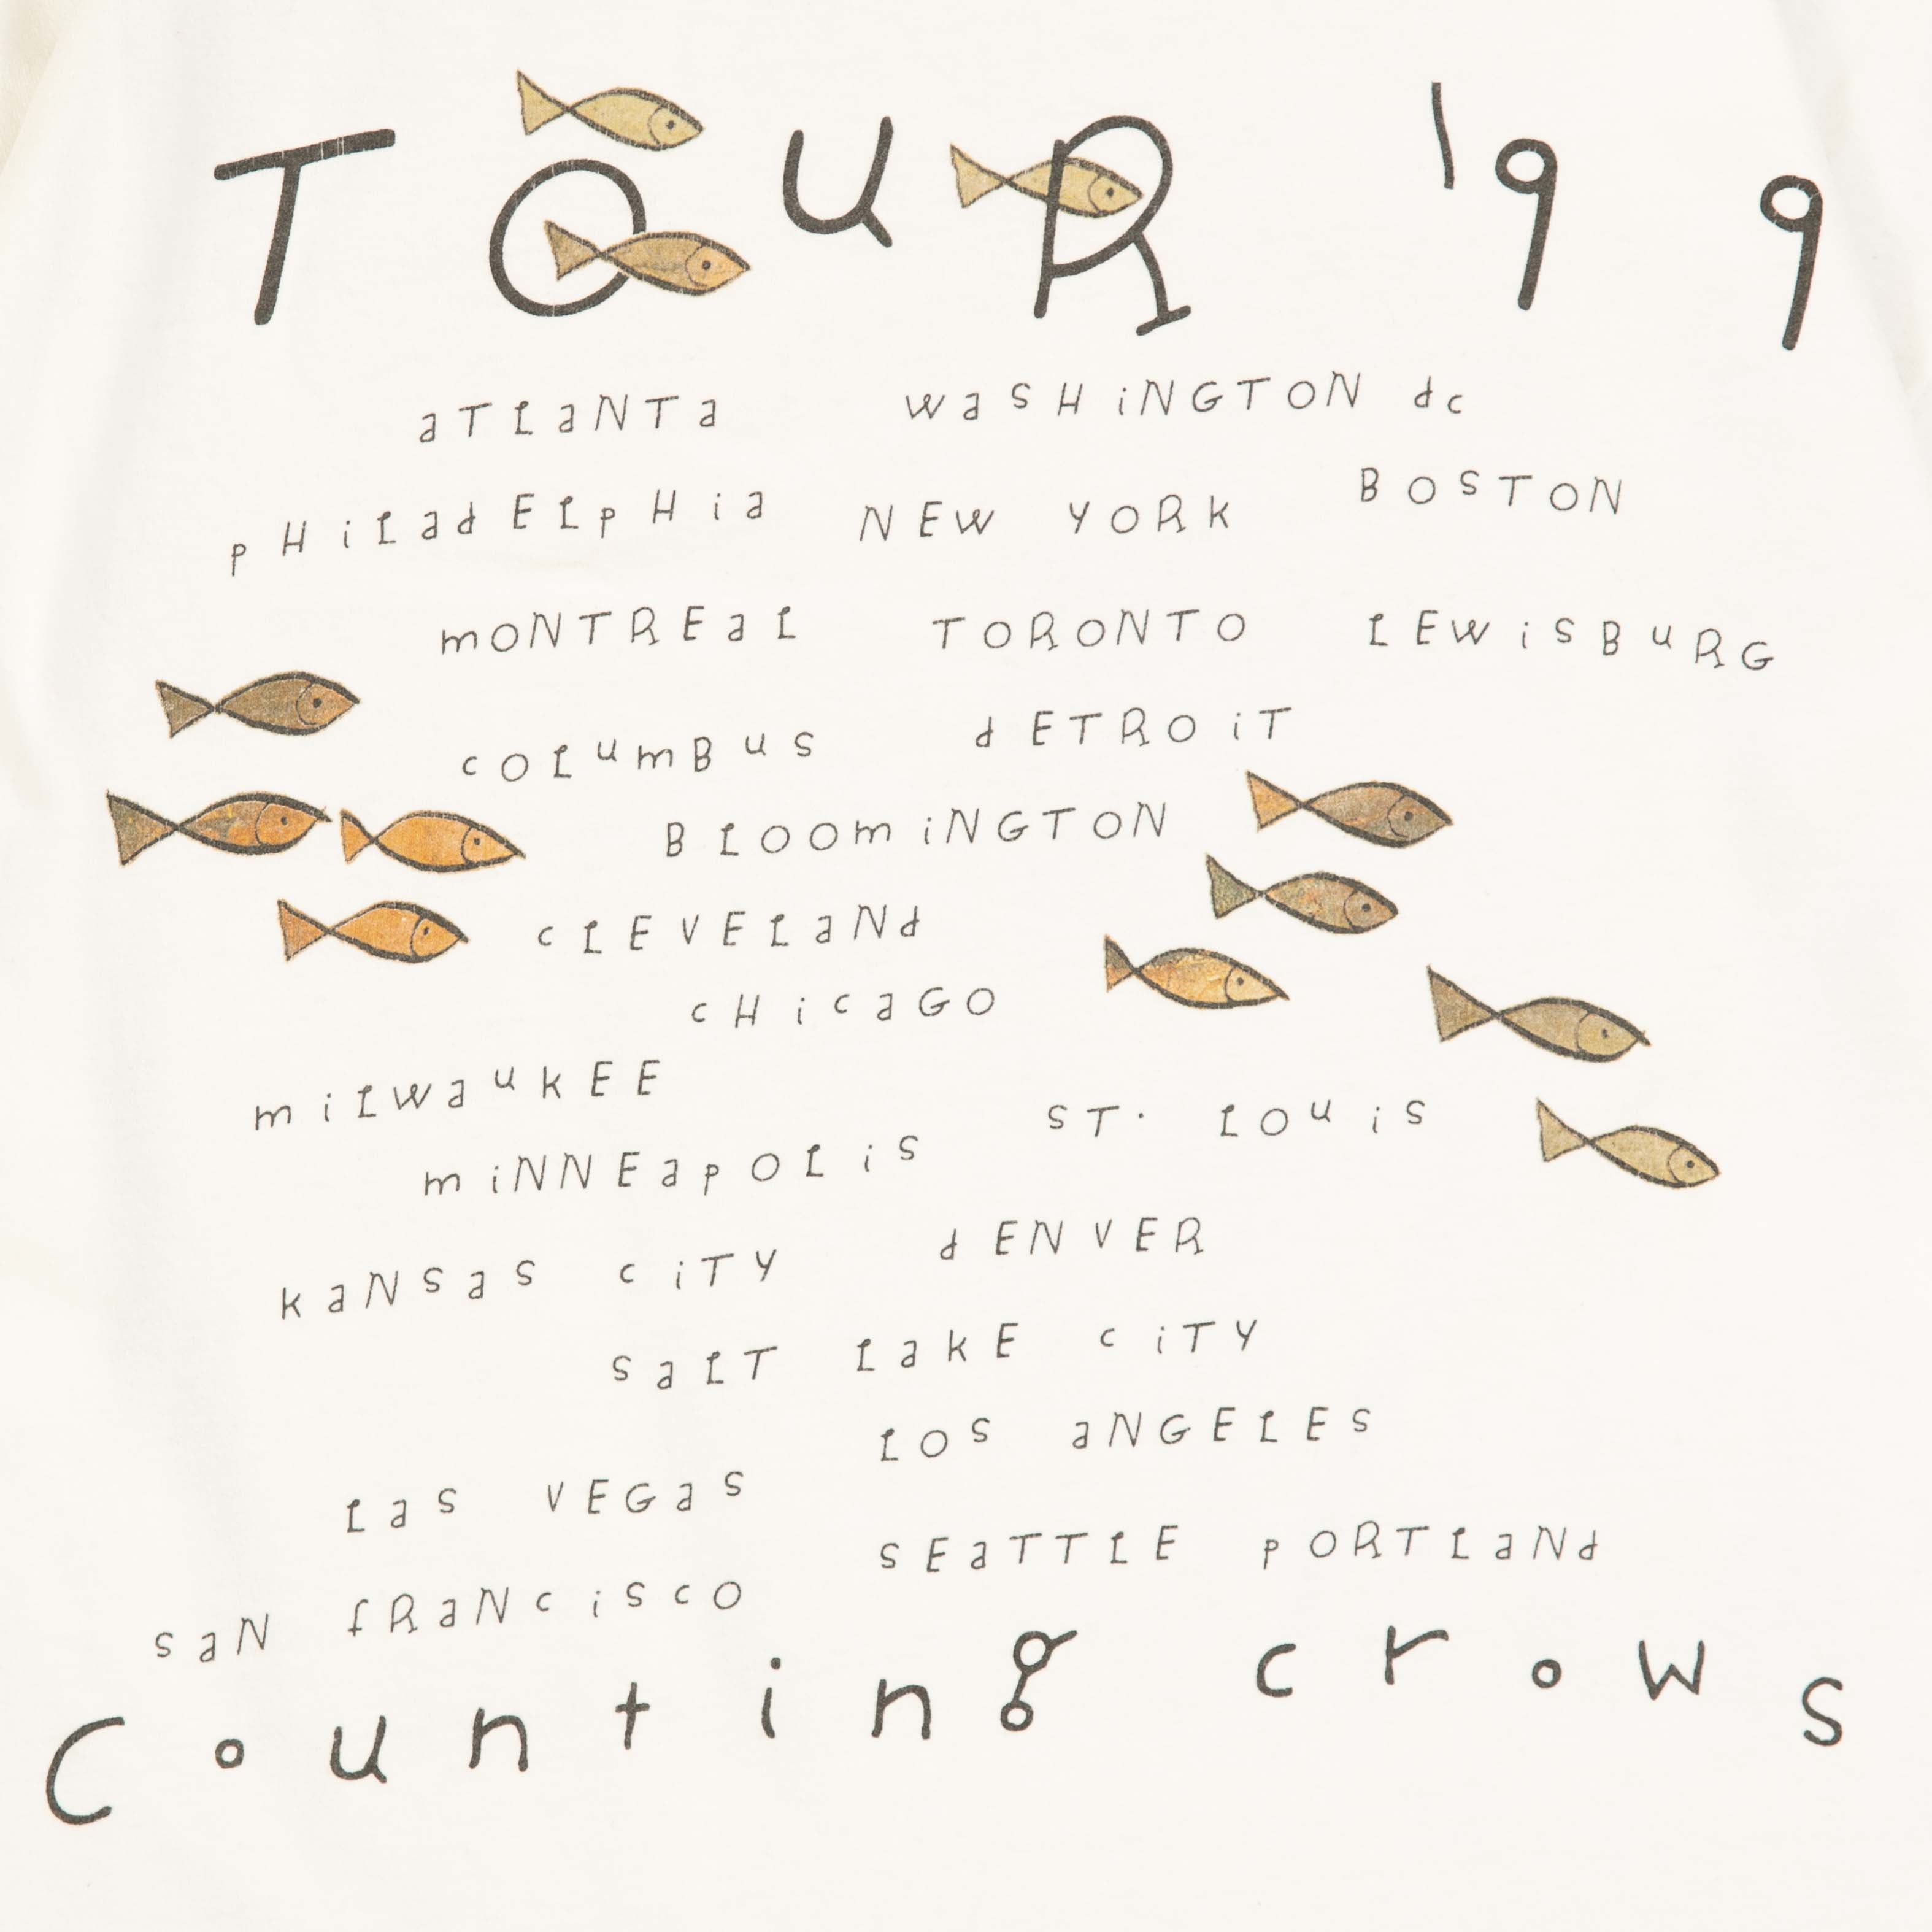 TOUR '99
aTLaNTa WaSHiNGTON dc
pHiLadELpHia NEW YORk BOSTON
mONTREaL TORONTO LEWiSBuRG
cOLumBuS dETROiT
BLOOmiNGTON
cLEVELaNd
cHicaGO
miLWaukEE
ST. LOuiS
miNNEapOLiS
dENVER
kaNSaS ciTY
SaLT LakE ciTY
LOS aNGELES
LaS VEGaS
SEaTTLE pORTLaNd
SaN fRaNciScO
Counting crows